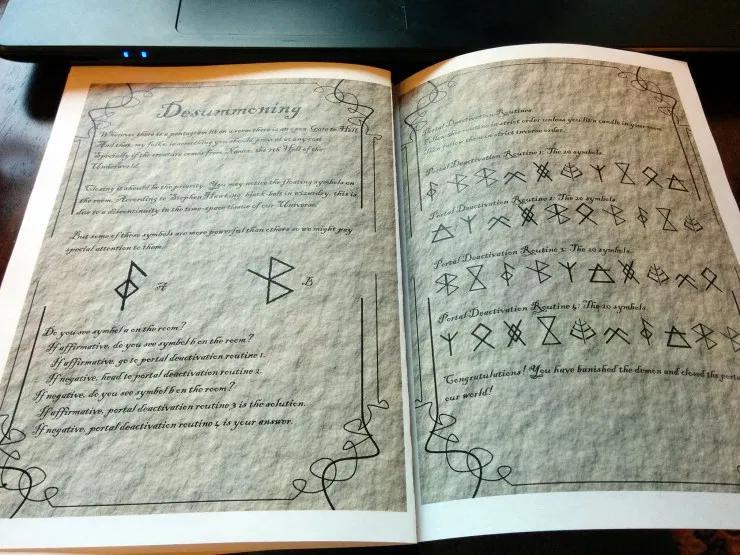 Desummoning
Whenever there is a pentagram lit on a room there is an open Gate to Hell.
And that, my folks, is something you should prevent at any cost.
Specially if the creature comes from the 7th Hell of the
Underworld.
Closing it should be the priority. You may notice the floating symbols on
the room. According to Stephen Hawking, black-belt in wizardry, this is
due to a discontinuity in the time-space tissue of our Universe.
But some of these symbols are more powerful than others so we might pay
special attention to them:
A
B
Do you see symbol a on the room?
If affirmative, do you see symbol b on the room?
If affirmative, go to portal deactivation routine 1.
If negative, head to portal deactivation routine 2.
If negative, do you see symbol b on the room?
If affirmative, portal deactivation routine 3 is the solution.
If negative, portal deactivation routine 4 is your answer.
Portal Deactivation Routines
Follow this routine in strict order unless you like a candle in your
then follow them in strict inverse order.
Portal Deactivation Routine 1: The 10 symbols.
Portal Deactivation Routine 2: The 10 symbols.
Portal Deactivation Routine 3: The 10 symbols.
Portal Deactivation Routine 4: The 10 symbols.
Congratulations! You have banished the demon and closed the
our world!